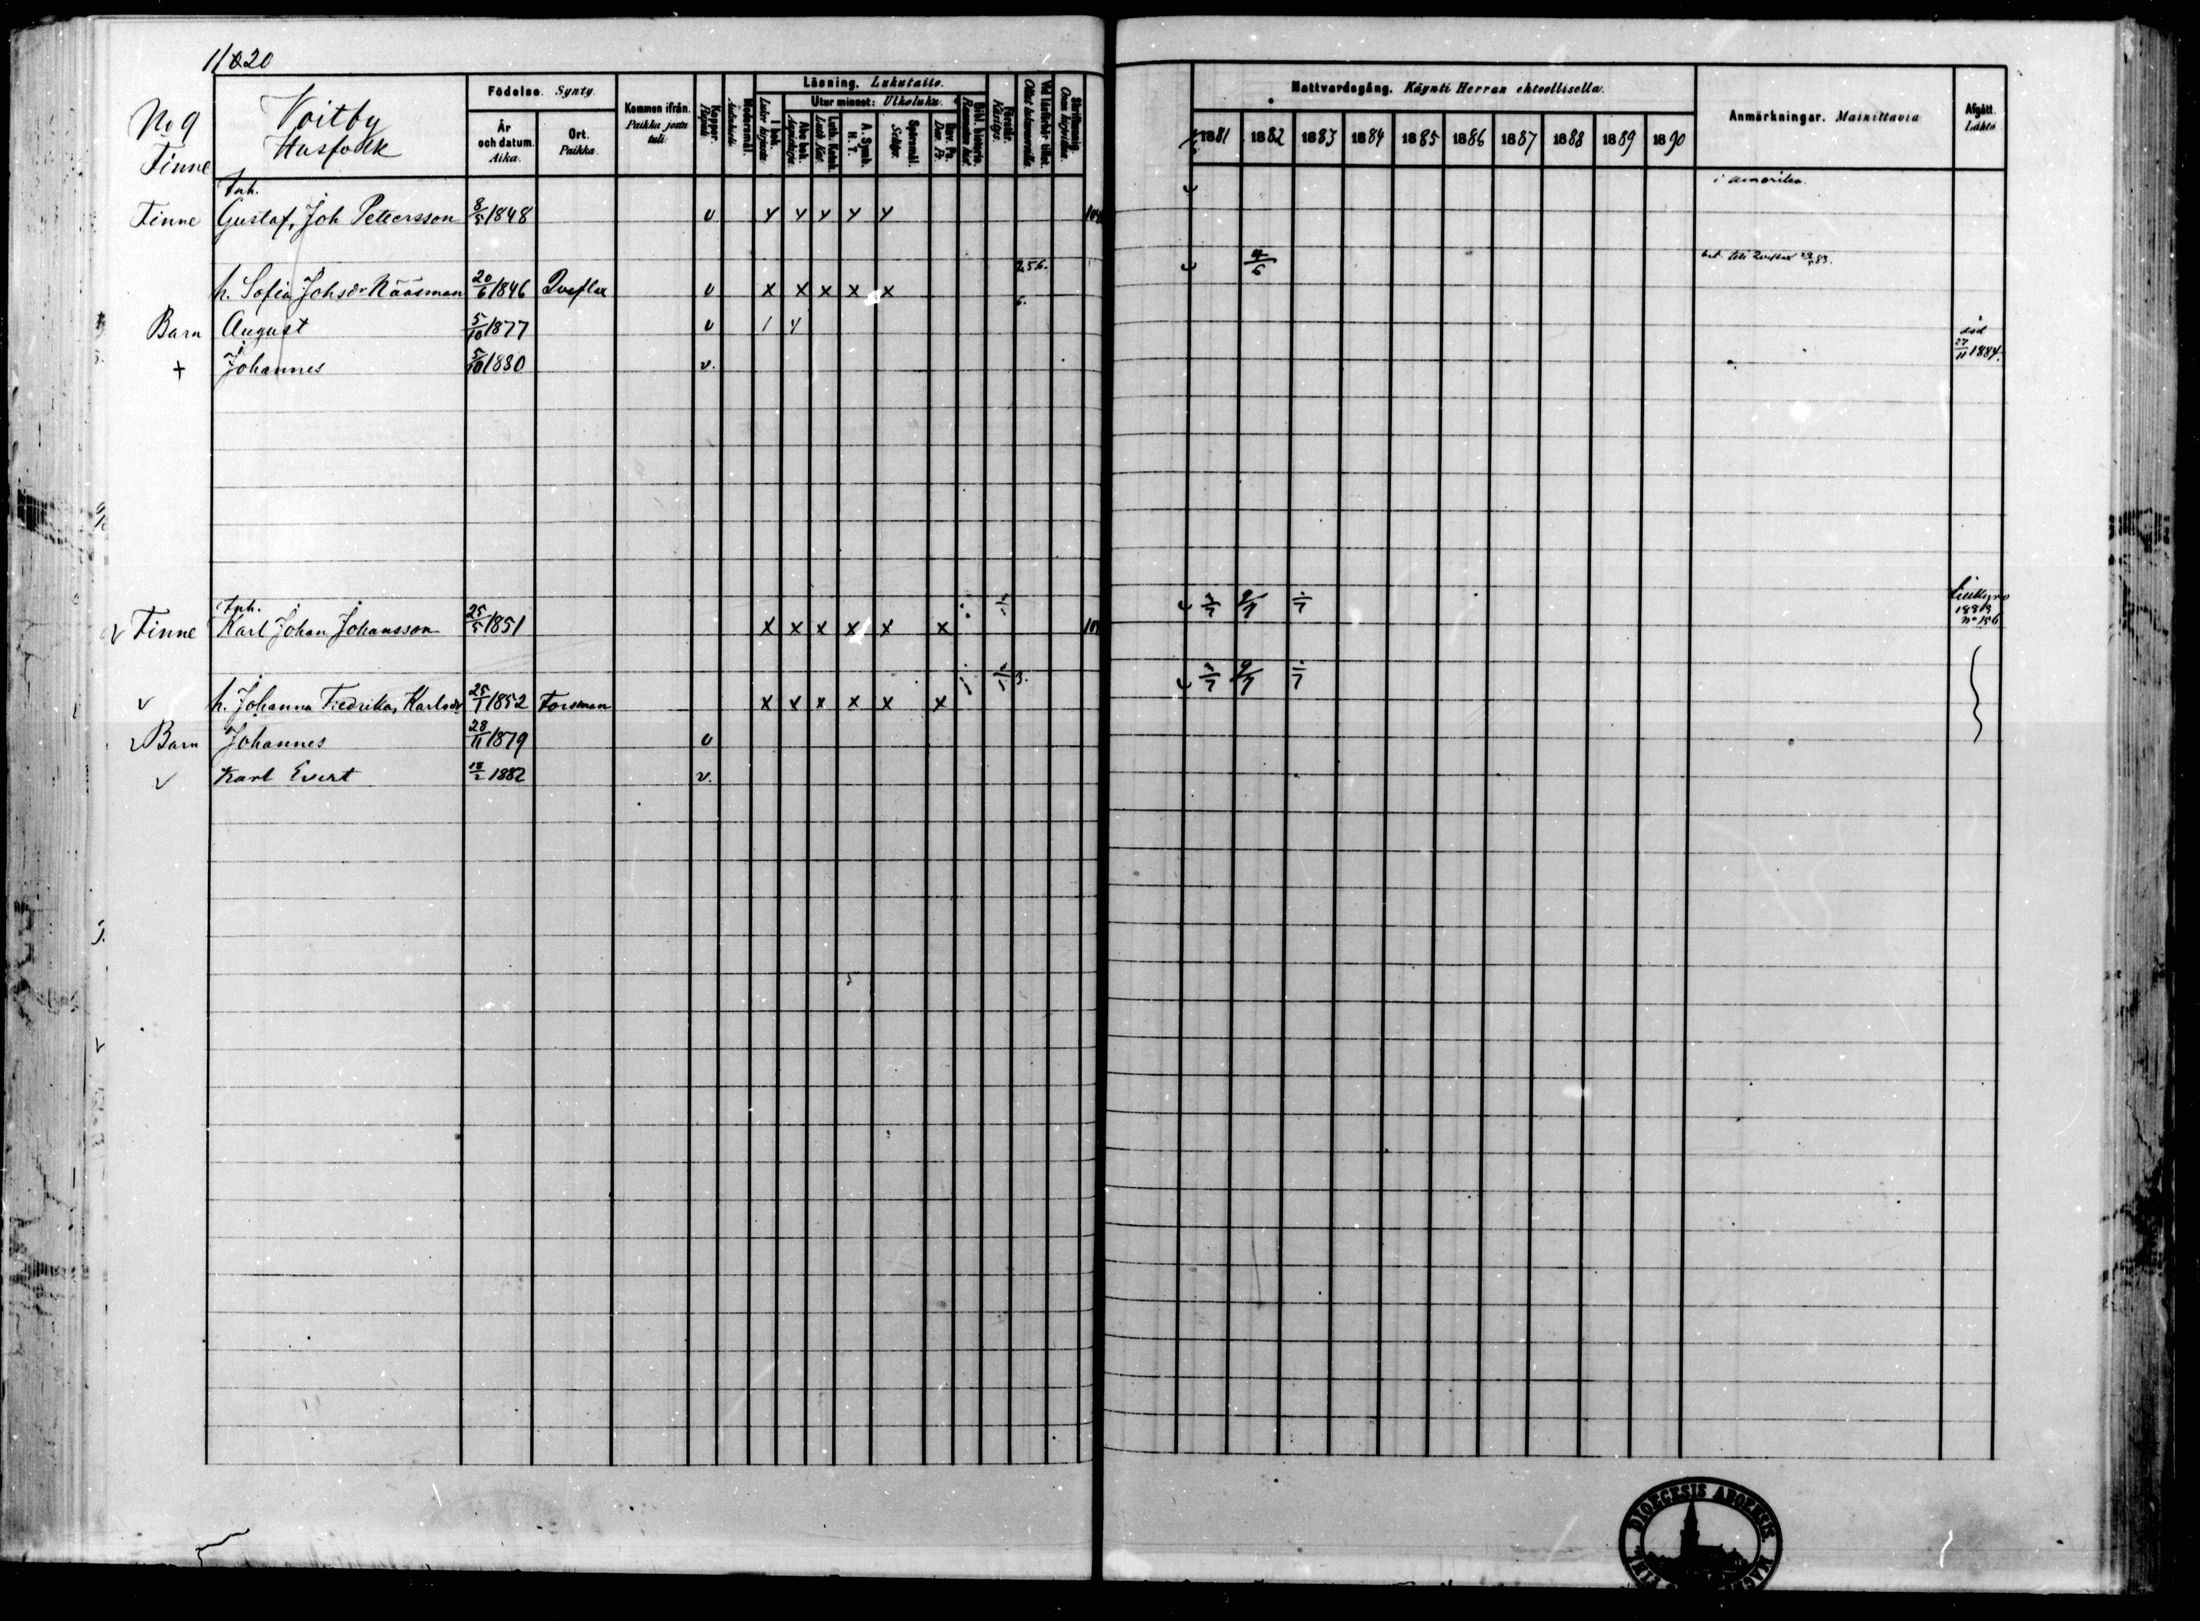 No 9
Finne
Voitby
Husfolk
Födelse. Synty.
År och datum. Aika.
Ort. Paikka.
Kommen ifrån. Paikka josta tuli.
Koppor. Rupuli.
Läsning. Lukutaito.
I bok.
Utur minnet: Ulkoluku.
Abc bok.
Luth. Katek.
A. Symb. H. T.
Spörsmål.
Dav. Ps.
Bibl. historia.
Nattvardsgång. Käynti Herran ehtoollisella.
1881 1882 1883 1884 1885 1886 1887 1888 1889 1890
Anmärkningar. Mainittavia
Afgått. Lähtö.
Inh.
i Amerika.
Finne Gustaf, Joh Pettersson 8/5 1848 v
256.
h. Sofia Johsdr Nääsman 20/6 1846 Qveflax v x x x x x
6.
Barn August 5/10 1877 v
+ Johannes 5/10 1880 v.
död 27/11 1884.
Inh.
v Finne Karl Johan Johansson 25/5 1851 x x x x x x
Lillkyro
No 156
v h. Johanna Fredrika, Karlsdr 25/1 1852 Forsman x x x x x x
Barn Johannes 28/11 1879 v
v Karl Evert 18/2 1882 v.
DIOECESIS ABOENSIS